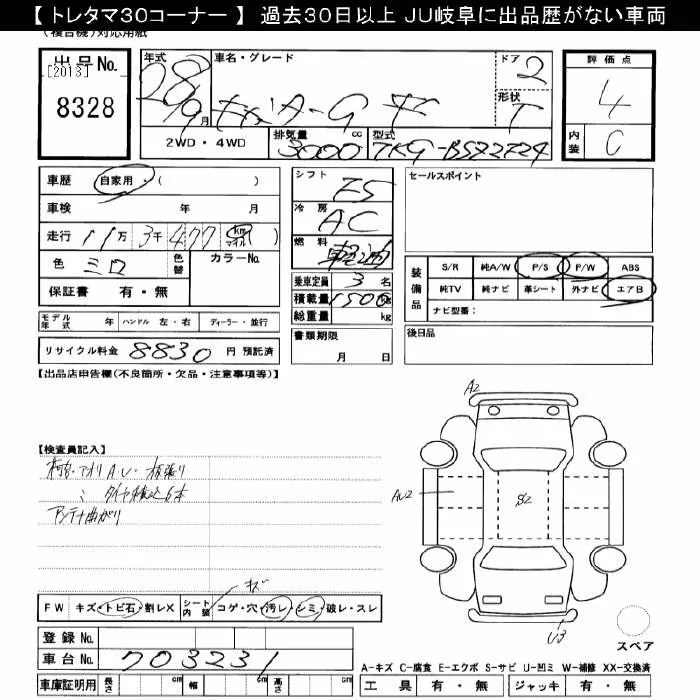 【トレタマ30コーナー】過去30日以上 JU岐阜に出品歴がない車両
(複合機)対応用紙
出品No.
[2013]
8328
年式
28
9月
車名・グレード
ドア
2
形状
T
2WD・4WD
排気量 cc
3000
型式
評価点
4
内装
C
車歴 自家用・( )
車検 年 月
走行 11万3千477 km マイル( )
色
シロ
色替
カラーNo.
保証書 有・無
モデル年式 年 ハンドル 左・右 ディーラー・並行
リサイクル料金 8830 円 預託済
シフト
冷房
AC
燃料
軽油
乗車定員 3 名
積載量 1500 kg
総重量 kg
書類期限
月 日
セールスポイント
装備品
S/R 純A/W P/S P/W ABS
純TV 純ナビ 革シート 外ナビ エアB
ナビ型番:
後日品
【出品店申告欄(不良箇所・欠品・注意事項等)】
【検査員記入】
アオリ AU・板張り
タイヤ積込6本
アンテナ曲がり
A2
AU2
S2
U3
キズ
FW キズ・トビ石・割レX シート内装 コゲ・穴・汚レ・シミ・破レ・スレ
スペア
登録No.
車台No.
703231
A-キズ C-腐食 E-エクボ S-サビ U-凹ミ W-補修 XX-交換済
車庫証明用 長さ cm 幅 cm 高さ cm
工具 有・無 ジャッキ 有・無